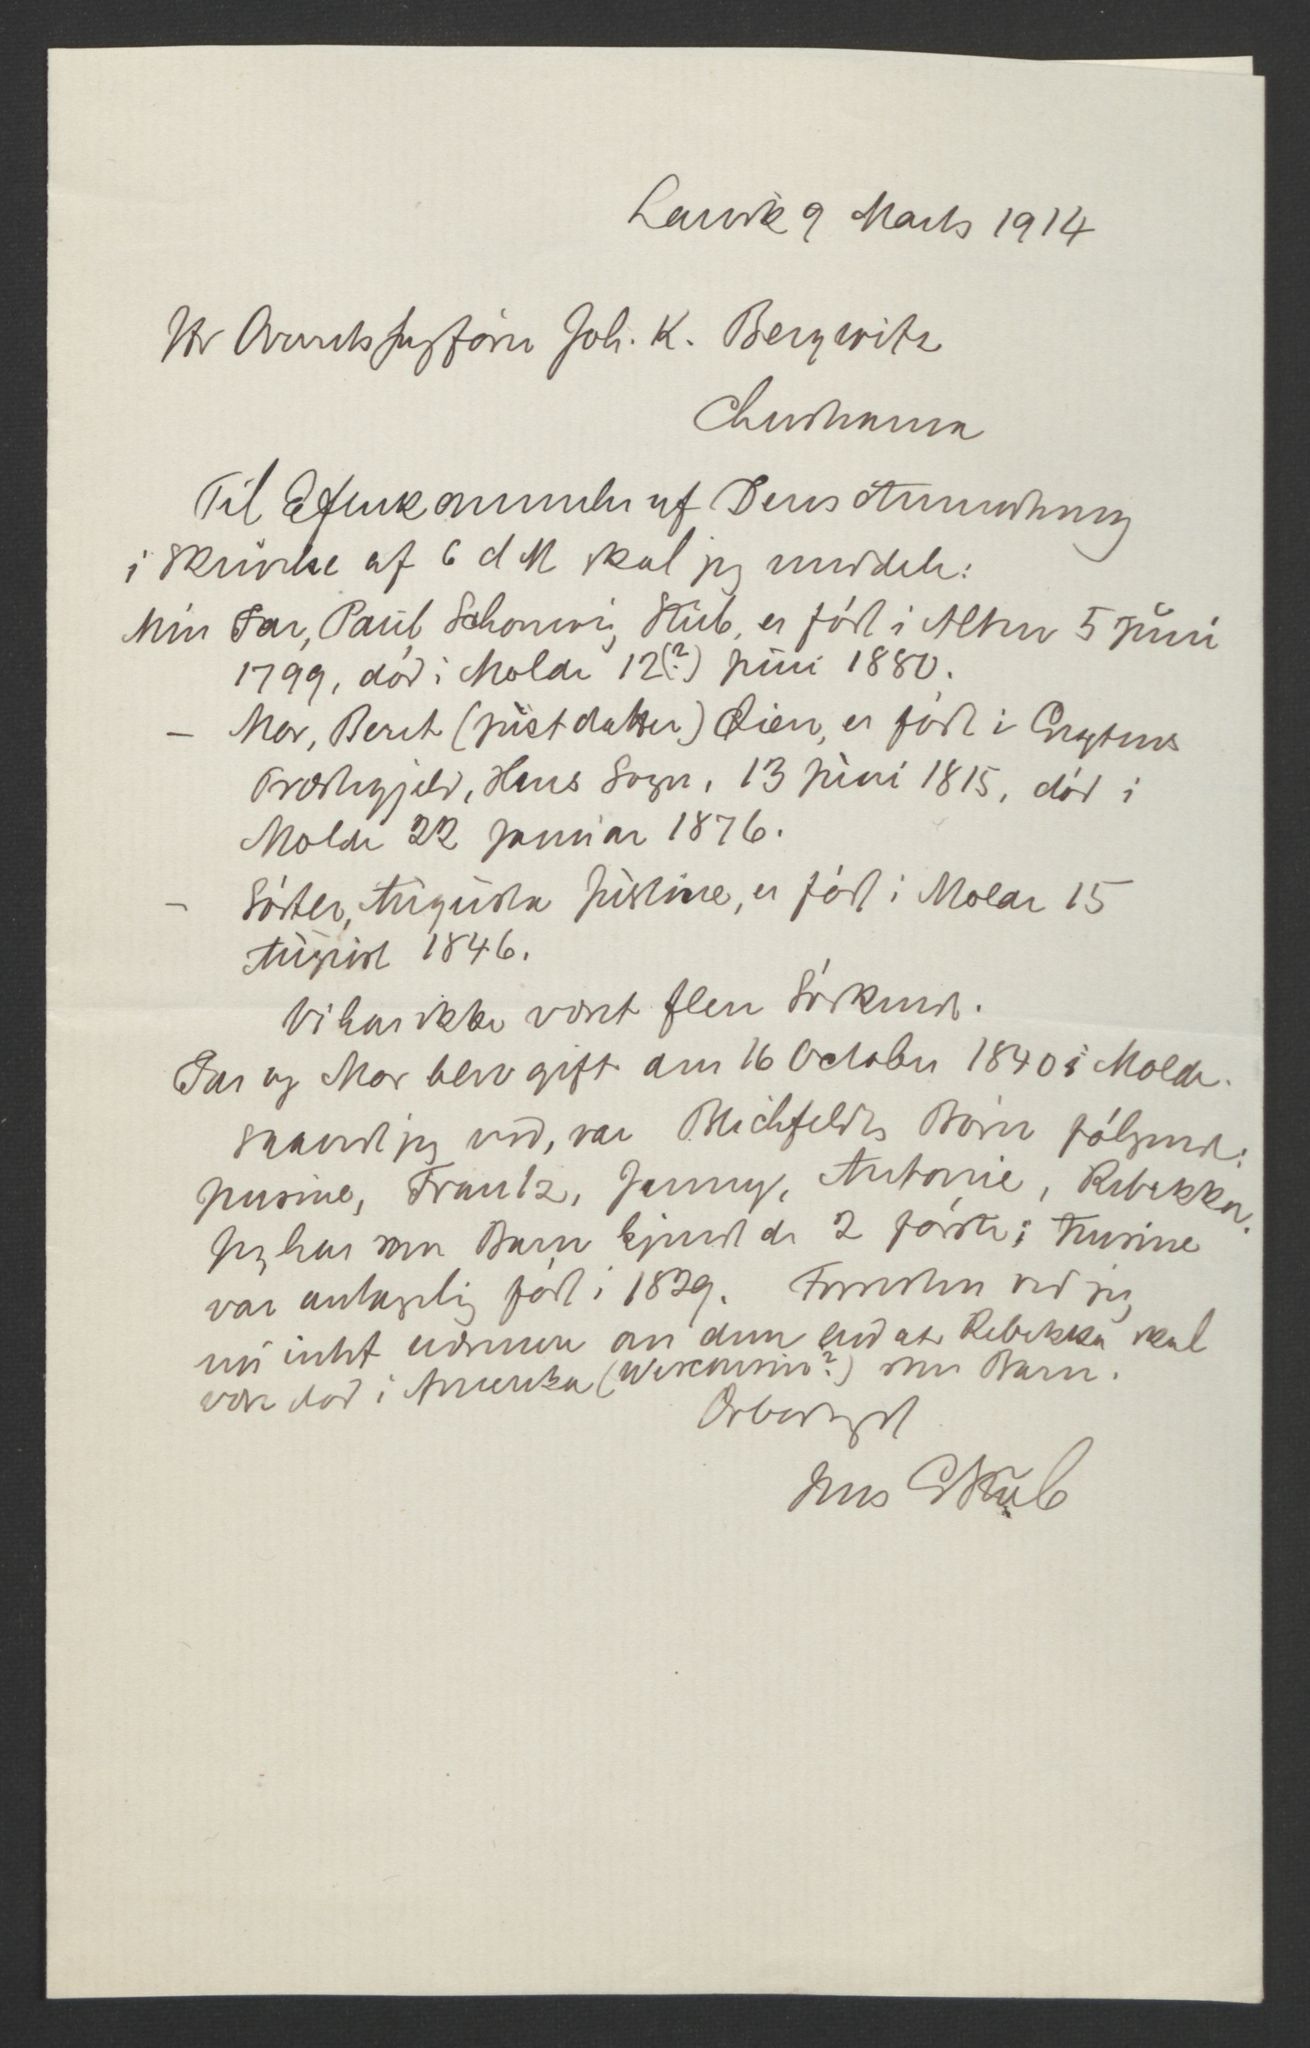 Larvik 9 Marts 1914
Hr Overretssagfører Joh. K. Bergwitz
Christiania
Til Efterkommelse af Deres Anmodning
i Skrivelse af 6 d M skal jeg meddele:
Min Far, Paul Schonvig Stub, er født i Alten 5 Juni
1799, død i Molde 12(?) Juni 1880.
– Mor, Berit (Justdatter) Øien, er født i Grytens
Præstegjeld, Hens Sogn, 13 Juni 1815, død i
Molde 22 Januar 1876.
– Søster, Augusta Justine, er født i Molde 15
August 1846.
Vi har ikke været flere Søskende.
Far og Mor blev gift den 16 October 1840 i Molde.
Saavidt jeg ved, var Blichfeldts Børn følgende:
Jusine, Frantz, Jenny, Antonie, Rebekka.
Jeg har som Barn kjendt de 2 første; Jusine
var antagelig født i 1829. Forresten ved jeg
nu intet nærmere om dem end at Rebekka skal
være død i Amerika (Wisconsin?) som Barn.
Ærbødigst
Jens Stub